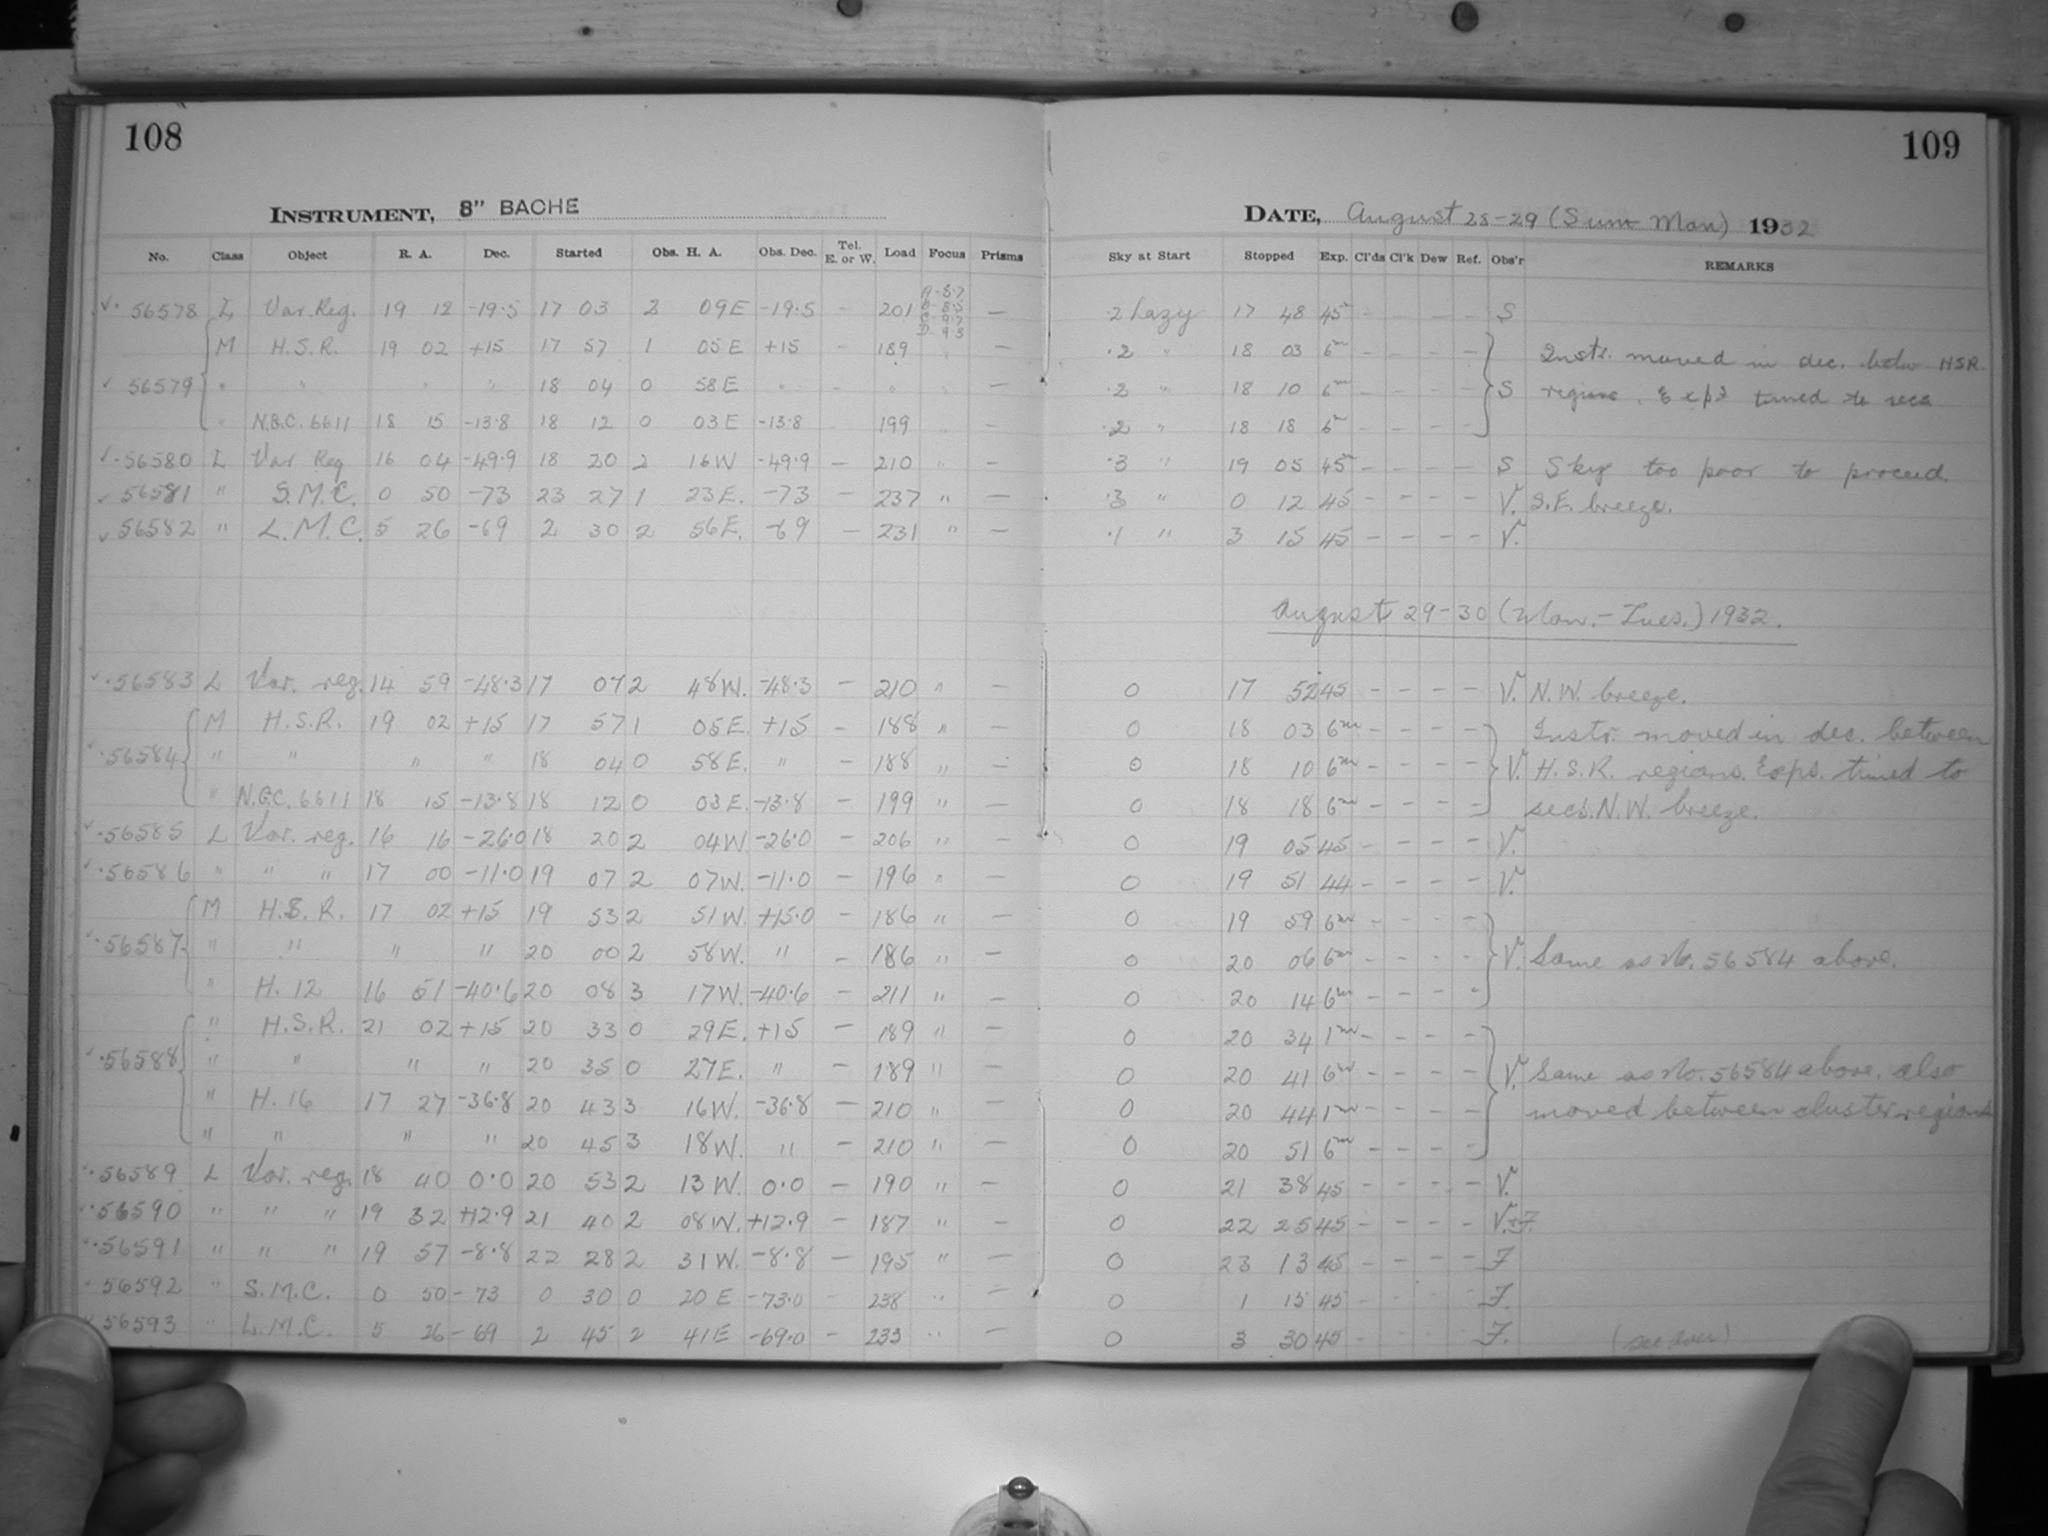 108
109
INSTRUMENT, 8" BACHE
DATE, August 28-29 (Sun-Mon) 1932
No. Class Object R. A. Dec. Started Obs. H. A. Obs. Dec. Tel. E. or W. Load Focus Prisms Sky at Start Stopped Exp. Cl'ds Cl'k Dew Ref. Obs'r REMARKS
56578 L Var. Reg. 19 12 -19.5 17 03 2 09E -19.5 - 201 A-8.7 — .2 hazy 17 48 45 - - - - S
M H.S.R. 19 02 +15 17 57 1 05E +15 - 189 " — .2 " 18 03 6m - - - - Instr. moved in dec. betw HSR
56579 " " " " 18 04 0 58E " - " " — .2 " 18 10 6m - - - - S regions. Exps timed to secs
" N.G.C. 6611 18 15 -13.8 18 12 0 03E -13.8 - 199 " — .2 " 18 18 6m - - - -
56580 L Var Reg 16 04 -49.9 18 20 2 16W -49.9 — 210 " — .3 " 19 05 45m - - - - S Sky too poor to proceed.
56581 " S.M.C. 0 50 -73 23 27 1 23E. -73 — 237 " — .3 " 0 12 45 - - - - V. S.E. breeze.
56582 " L.M.C. 5 26 -69 2 30 2 56E. -69 — 231 " — .1 " 3 15 45 - - - - V.
August 29-30 (Mon.-Tues.) 1932.
56583 L Var. reg. 14 59 -48.3 17 07 2 48W. -48.3 — 210 " — 0 17 52 45 - - - - V. N.W. breeze.
M H.S.R. 19 02 +15 17 57 1 05E. +15 - 188 " — 0 18 03 6m - - - - Instr. moved in dec. between
56584 " " " " 18 04 0 58E. " - 188 " — 0 18 10 6m - - - - V. H.S.R. regions. Exps. timed to
" N.G.C. 6611 18 15 -13.8 18 12 0 03E. -13.8 - 199 " — 0 18 18 6m - - - - secs. N.W. breeze.
56585 L Var. reg. 16 16 -26.0 18 20 2 04W. -26.0 - 206 " — 0 19 05 45 - - - - V.
56586 " " " 17 00 -11.0 19 07 2 07W. -11.0 - 196 " — 0 19 51 44 - - - - V.
M H.S.R. 17 02 +15 19 53 2 51W. +15.0 - 186 " — 0 19 59 6m - - - -
56587 " " " " 20 00 2 58W. " - 186 " — 0 20 06 6m - - - - V. Same as No. 56584 above.
" H. 12 16 51 -40.6 20 08 3 17W. -40.6 - 211 " — 0 20 14 6m - - - -
" H.S.R. 21 02 +15 20 33 0 29E. +15 - 189 " — 0 20 34 1m - - - -
56588 " " " " 20 35 0 27E. " - 189 " — 0 20 41 6m - - - - V. Same as No. 56584 above, also
" H. 16 17 27 -36.8 20 43 3 16W. -36.8 — 210 " — 0 20 44 1m - - - - moved between cluster regions
" " " " 20 45 3 18W. " - 210 " — 0 20 51 6m - - - -
56589 L Var. reg. 18 40 0.0 20 53 2 13W. 0.0 - 190 " — 0 21 38 45 - - - - V.
56590 " " " 19 32 +12.9 21 40 2 08W. +12.9 - 187 " — 0 22 25 45 - - - - V.+F.
56591 " " " 19 57 -8.8 22 28 2 31W. -8.8 - 195 " — 0 23 13 45 - - - - F
56592 " S.M.C. 0 50 -73 0 30 0 20E -73.0 - 238 " — 0 1 15 45 - - - - F.
56593 " L.M.C. 5 26 -69 2 45 2 41E -69.0 - 233 " — 0 3 30 45 - - - - F. (see over)